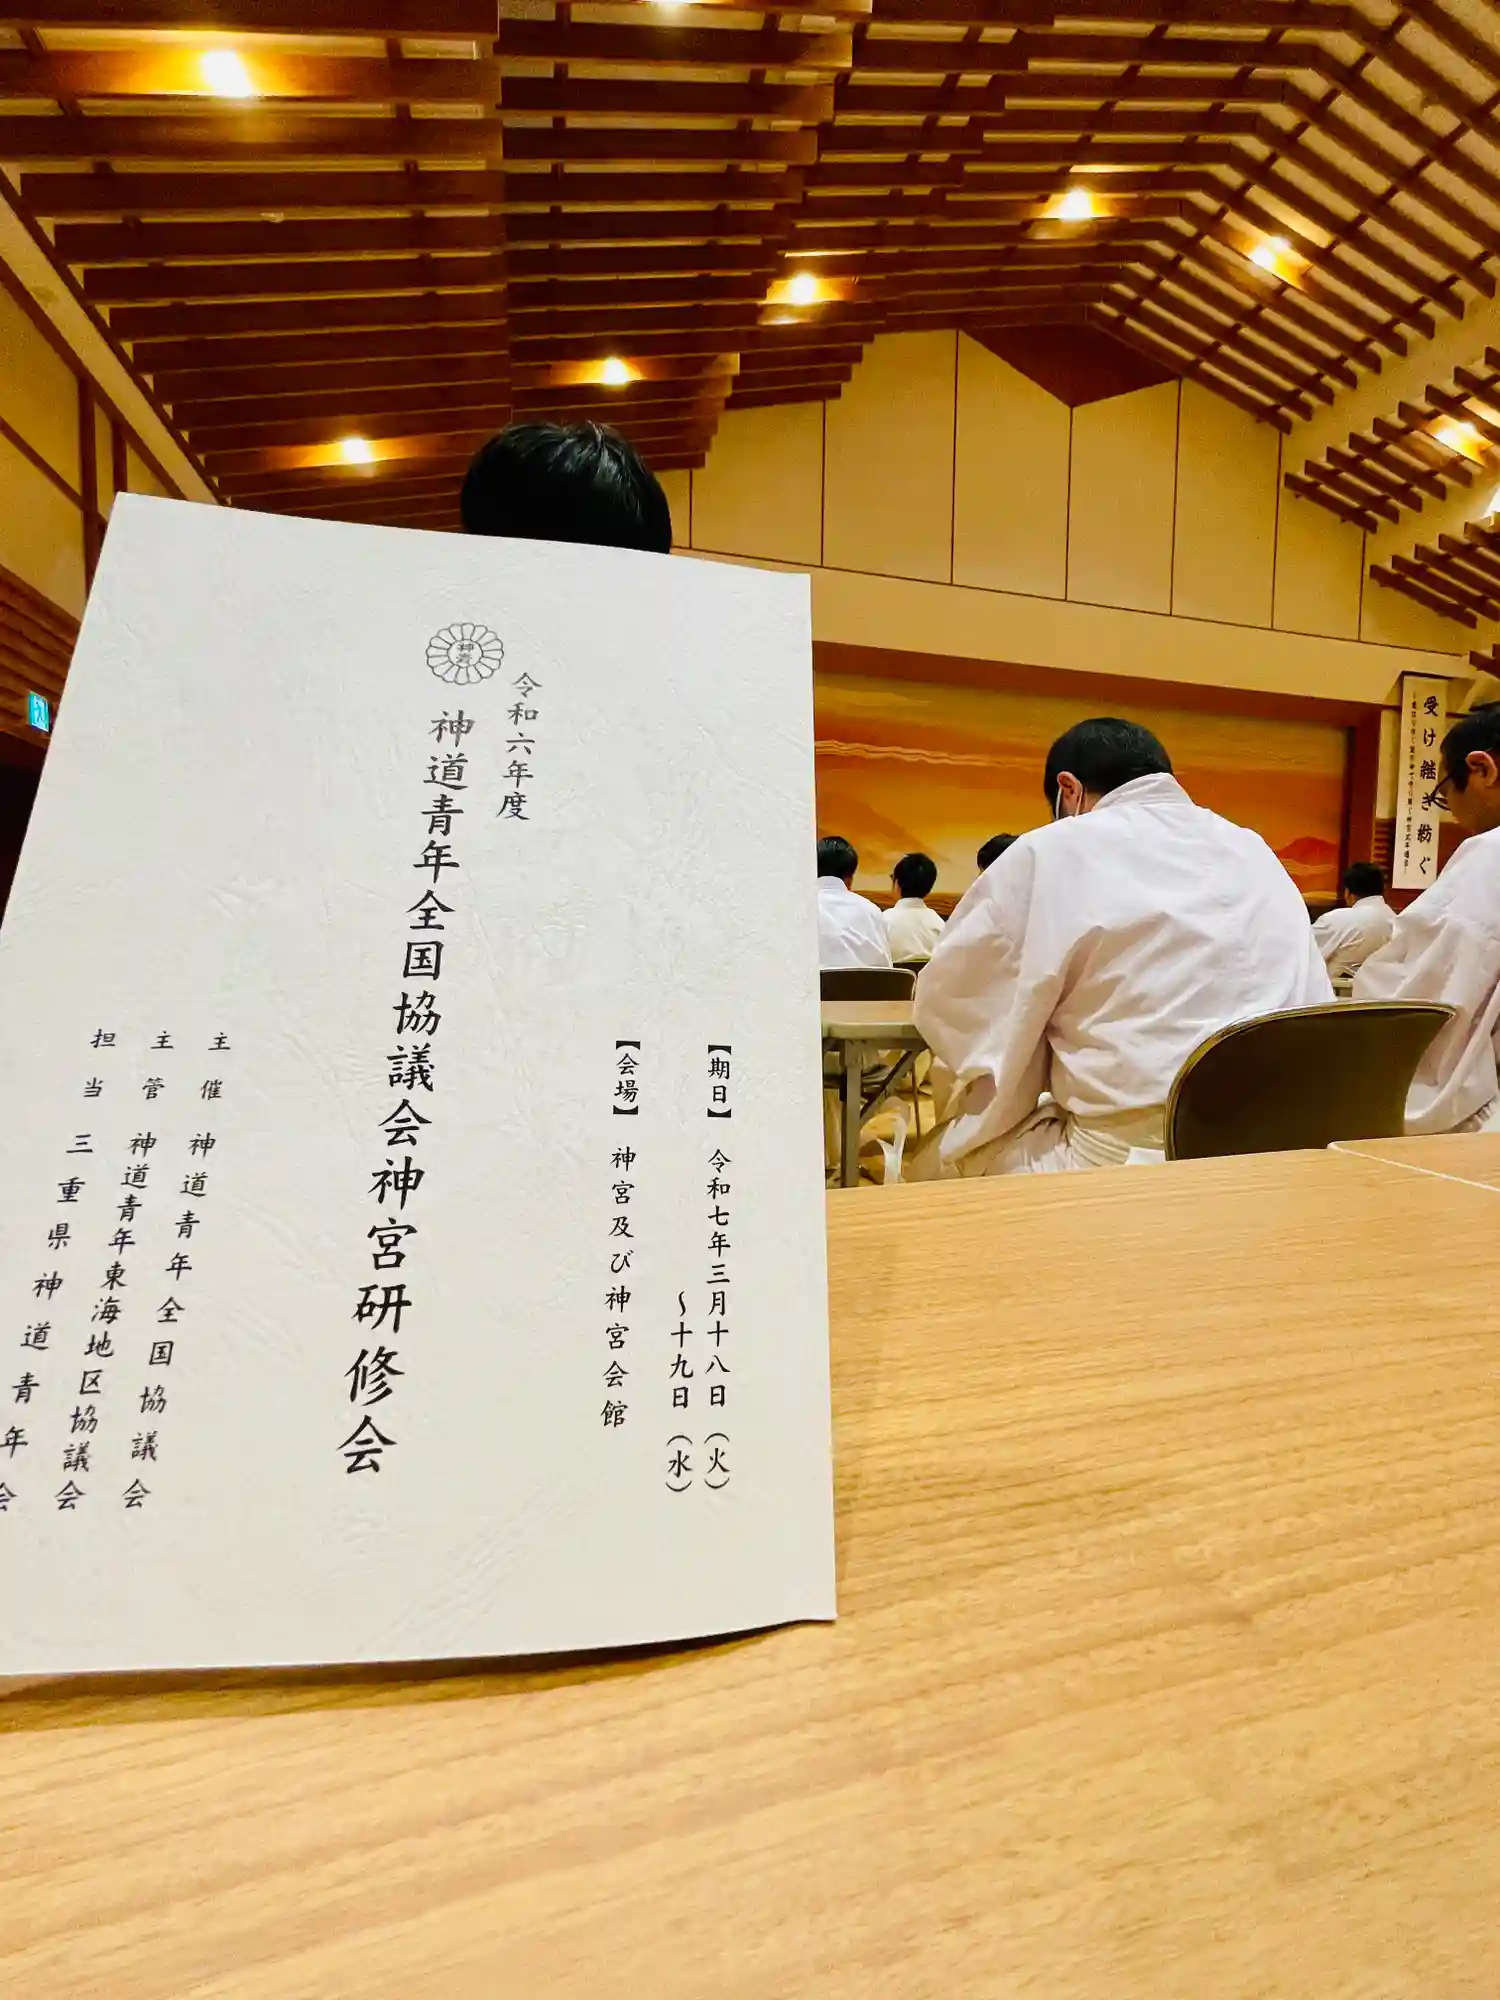 神青
令和六年度
神道青年全国協議会神宮研修会
【期日】 令和七年三月十八日(火)
~十九日(水)
【会場】 神宮及び神宮会館
主催 神道青年全国協議会
主管 神道青年東海地区協議会
担当 三重県神道青年会
受け継ぎ紡ぐ